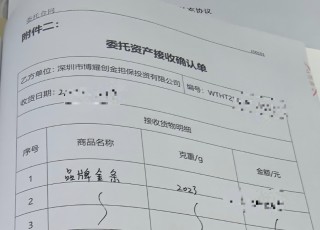 附件二：
委托资产接收确认单
乙方单位：深圳市博耀创金担保投资有限公司 编号：WTHT2
收货日期：2
接收货物明细
序号 商品名称 克重/g 金额/元
1 品牌金条 2023
2
3